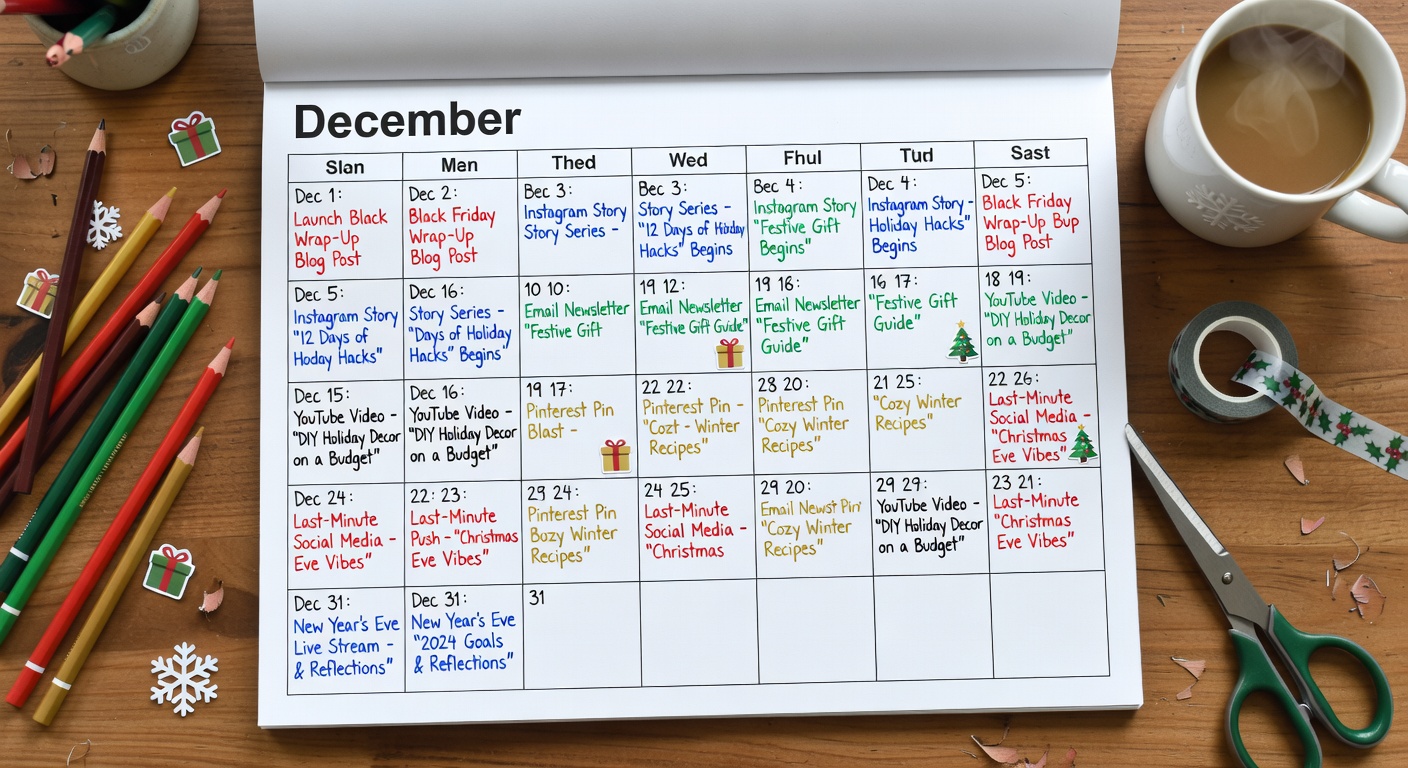 December
Slan Men Thed Wed Fhul Tud Sast
Dec 1:
Launch Black
Wrap-Up
Blog Post
Dec 2:
Black Friday
Wrap-Up
Blog Post
Bec 3:
Instagram Story
Story Series -
Bec 3:
Story Series -
"12 Days of
Hacks" Begins
Bec 4:
Instagram Story
"Festive Gift
Begins"
Dec 4:
Instagram Story -
Holiday Hacks"
Begins
Dec 5:
Black Friday
Wrap-Up Bup
Blog Post
Dec 5:
Instagram Story
"12 Days of
Hoday Hacks"
Dec 16:
Story Series -
"Days of Holiday
Hacks" Begins"
10 10:
Email Newsletter
"Festive Gift
19 12:
Email Newsletter
"Festive Gift Guide"
19 16:
Email Newsletter
"Festive Gift
Guide"
16 17:
"Festive Gift
Guide"
18 19:
YouTube Video -
"DIY Holiday Decor
on a Budget"
Dec 15:
YouTube Video -
"DIY Holiday Decor
on a Budget"
Dec 16:
YouTube Video -
"DIY Holiday Decor
on a Budget"
19 17:
Pinterest Pin
Blast -
22 22:
Pinterest Pin -
"Cozt - Winter
Recipes"
28 20:
Pinterest Pin
"Cozy Winter
Recipes"
21 25:
"Cozy Winter
Recipes"
22 26:
Last-Minute
Social Media -
"Christmas
Eve Vibes"
Dec 24:
Last-Minute
Social Media -
Eve Vibes"
22: 23:
Last-Minute
Push - "Christmas
Eve Vibes"
29 24:
Pinterest Pin
Bozy Winter
Recipes"
24 25:
Last-Minute
Social Media -
"Christmas
29 20:
Email Newst Pin'
"Cozy Winter
Recipes"
29 29:
YouTube Video -
"DIY Holiday Decor
on a Budget"
23 21:
Last-Minute
"Christmas
Eve Vibes"
Dec 31:
New Year's Eve
Live Stream -
& Reflections"
Dec 31:
New Year's Eve
"2024 Goals
& Reflections"
31